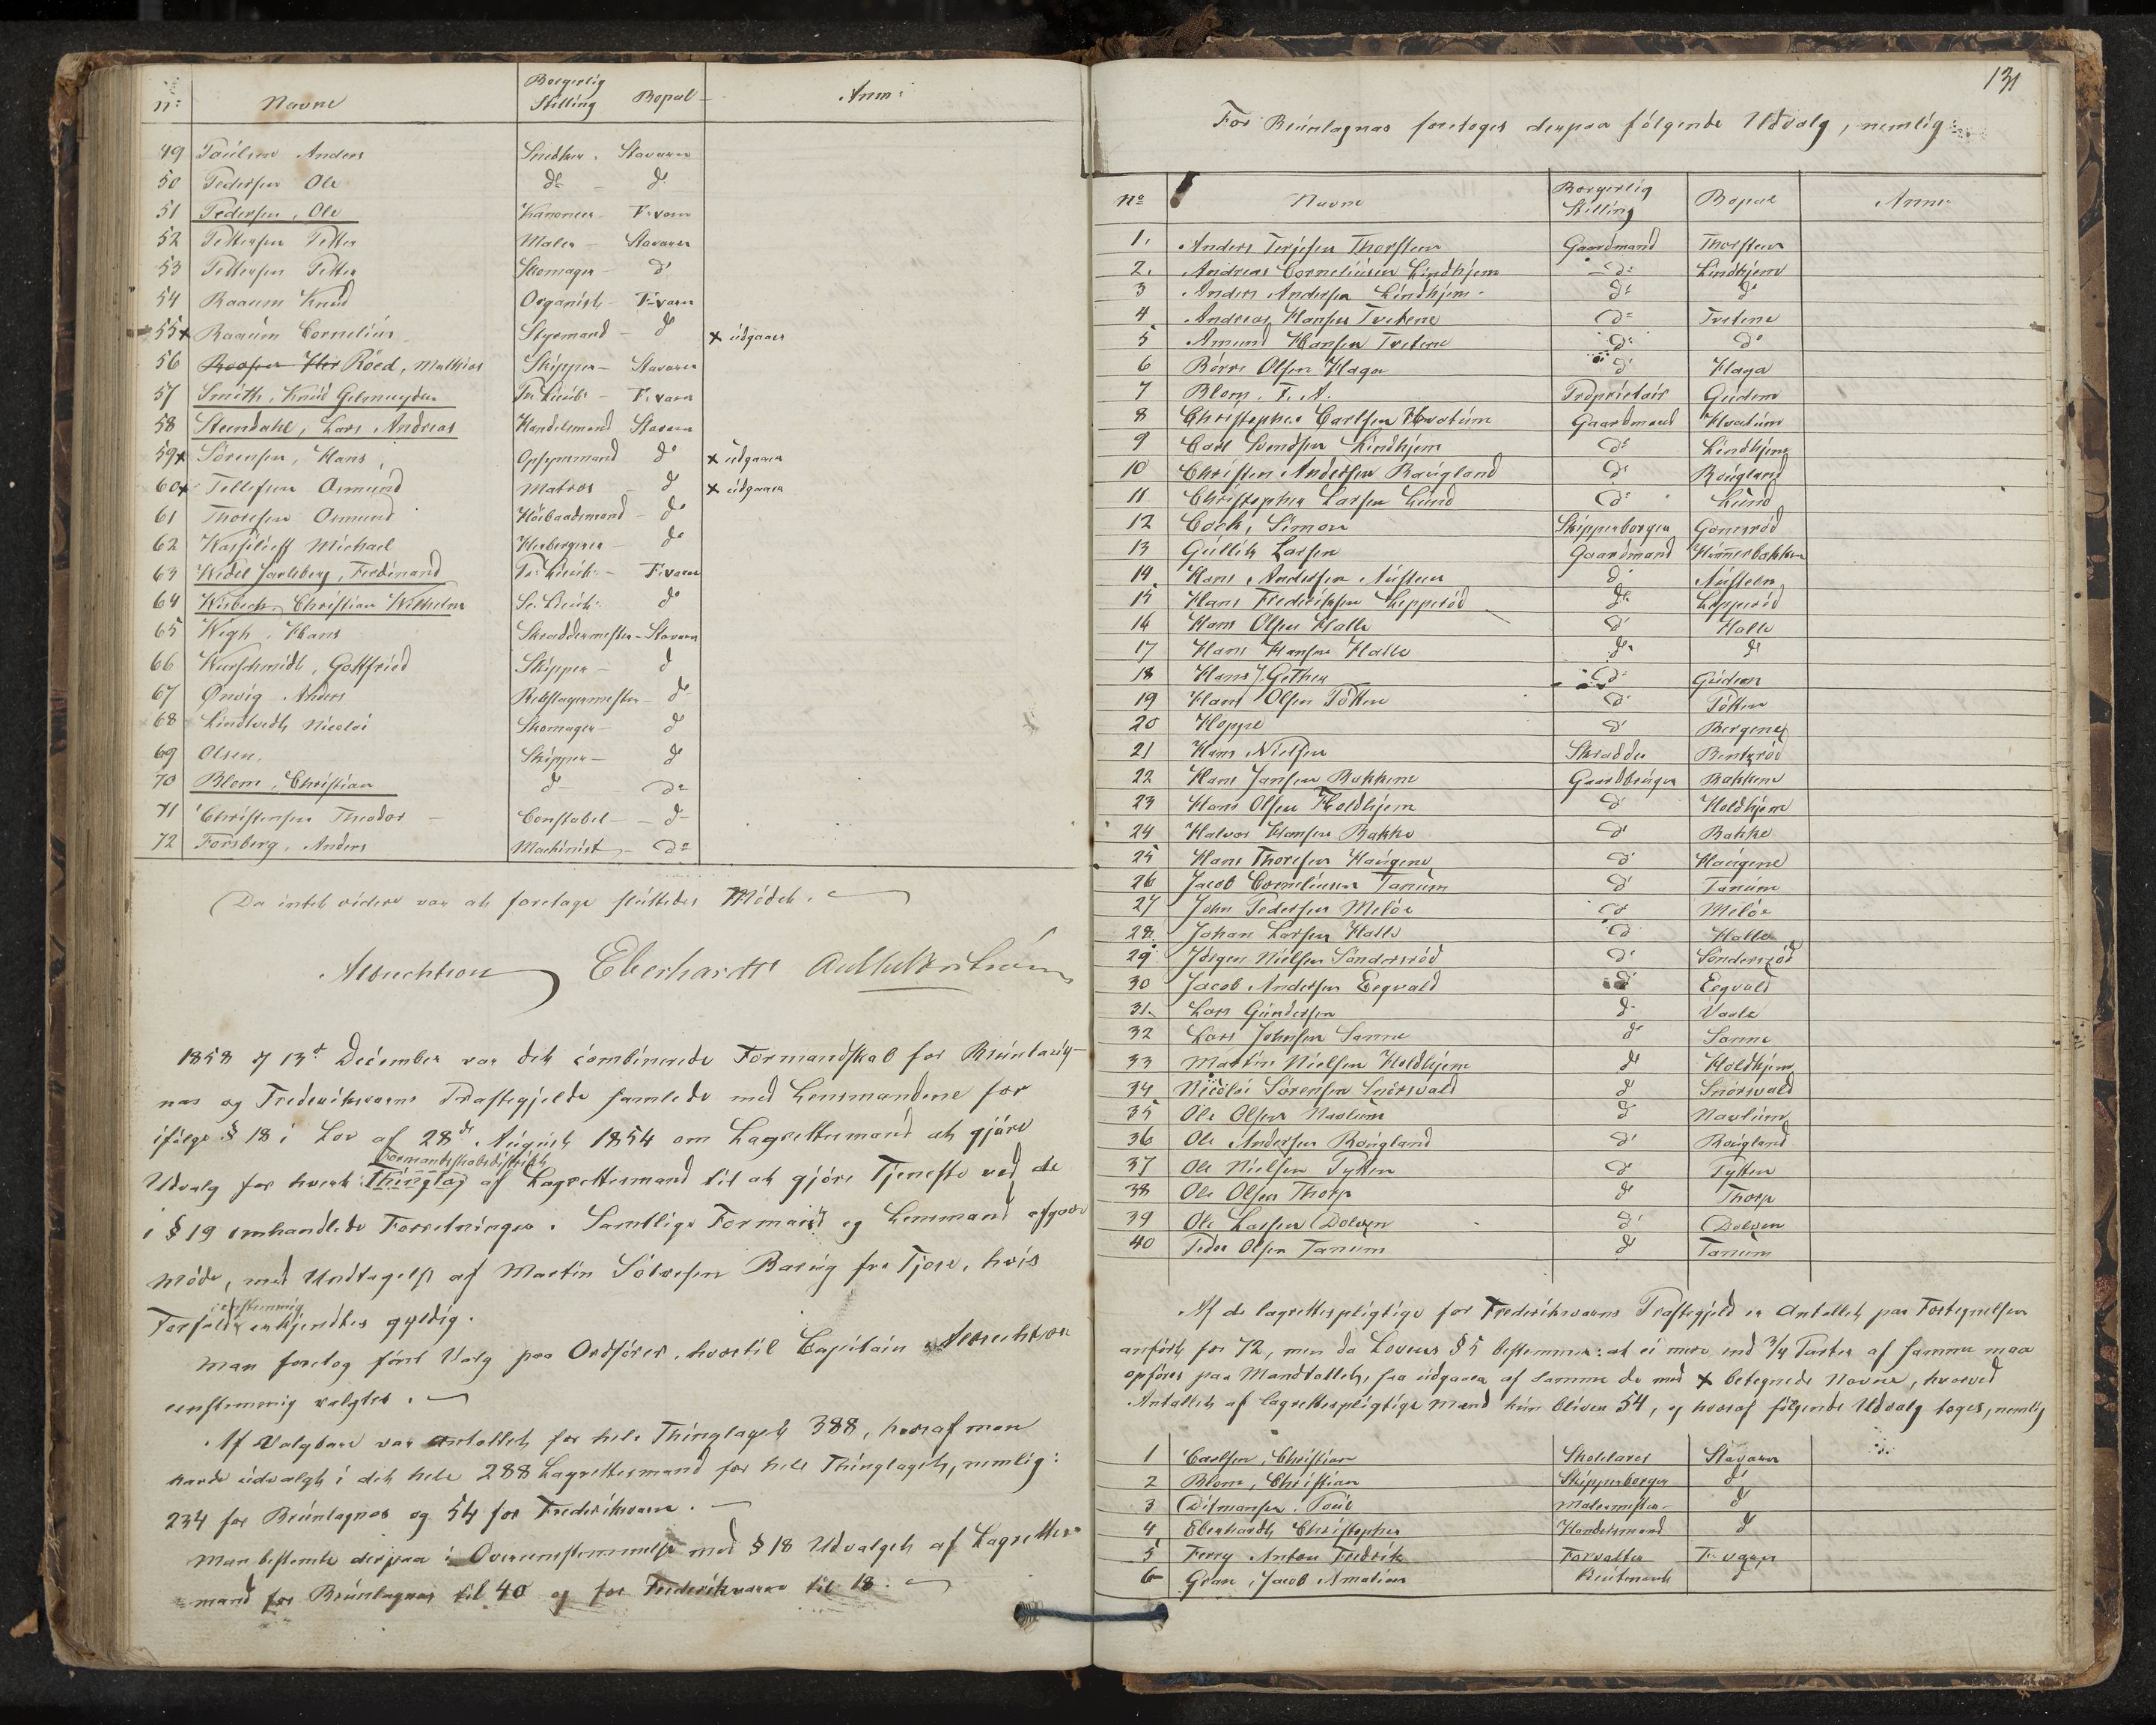 n: Navne Borgerlig Stilling Bopæl Anm:
49 Paulsen Anders Snedker Staværn
50 Pedersen Ole do do
51 Pedersen, Ole Kanoneer F:værn
52 Pettersen Petter Maler Staværn
53 Pettersen Petter Skomager do
54 Raaum Knud Organist F:værn
55 x Raaum Cornelius Styrmand do x udgaaer
56 Röed, Mathias Skipper Staværn
57 Smith, Knud Gelmuyden Pr: Lieut: F:værn
58 Steendahl, Lars Andreas Handelsmand Staværn
59 x Sörensen, Hans Opsynsmand do x udgaaer
60 x Tellefsen Osmund Matros do x udgaaer
61 Thoresen Osmund Höibaadsmand do
62 Wassilieff Michael Herbergerer do
63 Wedel Jarlsberg, Ferdinand Pr: Lieut: F:værn
64 Wisbech, Christian Wilhelm Sc. Lieut: do
65 Wegh, Hans Skreddermester Staværn
66 Wurschmidt, Gottfried Skipper do
67 Ønvig Anders Rebslagermester do
68 Lindtvedt Nicolai Skomager do
69 Olsen, Skipper do
70 Blom, Christian do do
71 Christensen Theodor Constabel do
72 Forsberg, Anders Machinist do
Da intet videre var at foretage sluttedes Mödet.
Albrechtson Eberhardt
1858 d 13de December var det combinerede Formandskab for Brunlaug-
næs og Frederiksværns Præstegjelde samlede med Lensmændene for
ifölge § 18 i Lov af 28de August 1854 om Lagrettemænd at gjöre
Formandskabsdistrikt
Udvalg for hvert Thinglag af Lagrettesmænd til at gjöre Tjeneste ved de
i § 19 omhandlede Forretninger. Samtlige Formænd og Lensmænd afgave
Möde, med Undtagelse af Martin Sölvesen Barug fra Tjose, hvis
eenstemmig
Forfald erkjendtes gyldig.
Man foretog först Valg paa Ordförer, hvortil Capitain Albrechtson
eenstemmig valgtes.
Af Valgbare var Antallet for hele Thinglaget 388, hvoraf man
havde udvalgt i det hele 288 Lagrettesmænd for hele Thinglaget, nemlig:
234 for Brunlagnæs og 54 for Frederiksværn.
Man bestemte derpaa i Overeensstemmelse med § 18 Udvalget af Lagrettes-
mænd for Brunlagnæs til 40 og for Frederiksværn til 18.
131
For Brunlagnæs foretoges derpaa fölgende Udvalg, nemlig:
No Navne Borgerlig Stilling Bopæl Anm:
1. Anders Terjesen Thorsteen Gaardmand Thorsteen
2. Andreas Corneliusen Lindhjem do Lindhjem
3 Anders Andersen Lindhjem do do
4 Andreas Hansen Tvetene do Tvetene
5 Amund Hansen Tvetene do do
6 Börre Olsen Haga do Haga
7 Blom, F. A. Proprietair Gudem
8 Christopher Carlsen Hvatum Gaardmand Hvatum
9 Carl Svendsen Lindhjem do Lindhjem
10 Christen Andersen Rougland do Rougland
11 Christopher Larsen Lund do Lund
12 Cock, Simon Skipperborger Gonersöd
13 Gullik Larsen Gaardmand Hummerbakken
14 Hans Andersen Austeen do Austeen
15 Hans Frederiksen Lepperöd do Lepperöd
16 Hans Olsen Halle do Halle
17 Hans Hansen Halle do do
18 Hans J. Gether do Gudem
19 Hans Olsen Pötten do Pötten
20 Hoppe do Bergene
21 Hans Nielsen Skrædder Rentzröd
22 Hans Jansen Bakkene Gaardbruger Bakkene
23 Hans Olsen Holdhjem do Holdhjem
24 Halvor Hansen Bakke do Bakke
25 Hans Thoresen Haugene do Haugene
26 Jacob Corneliusen Tanum do Tanum
27 John Pedersen Melöe do Melöe
28 Johan Larsen Halle do Halle
29 Jörgen Nielsen Söndersröd do Söndersröd
30 Jacob Andersen Eegvald do Eegvald
31. Lars Gundersen do Vaale
32 Lars Johnsen Sanne do Sanne
33 Martin Nielsen Holdhjem do Holdhjem
34 Nicolai Sörensen Snörsvald do Snörsvald
35 Ole Olsen Navlum do Navlum
36 Ole Andersen Rougland do Rougland
37 Ole Nielsen Pytten do Pytten
38 Ole Olsen Thorp do Thorp
39 Ole Larsen Dolven do Dolven
40 Peder Olsen Tanum do Tanum
Af de lagrettespligtige for Frederiksværns Præstegjeld er Antallet paa Fortegnelsen
anfört for 72, men da Lovens § 5 bestemmer: at ei mere end 3/4 Parter af samme maa
opföres paa Mandtallet, saa udgaaer af samme de med x betegnede Navne, hvorved
Antallet af lagrettespligtige Mænd kun bliver 54, og hvoraf fölgende Udvalg toges, nemlig
1 Carlsen, Christian Skolelærer Staværn
2 Blom, Christian Skipperborger do
3 Ditmansen, Poul Malermester do
4 Eberhardt Christopher Handelsmand do
5 Ferry Anton Fredrik Forvalter F:værn
6 Gran, Jacob Amatius Lieutenant do